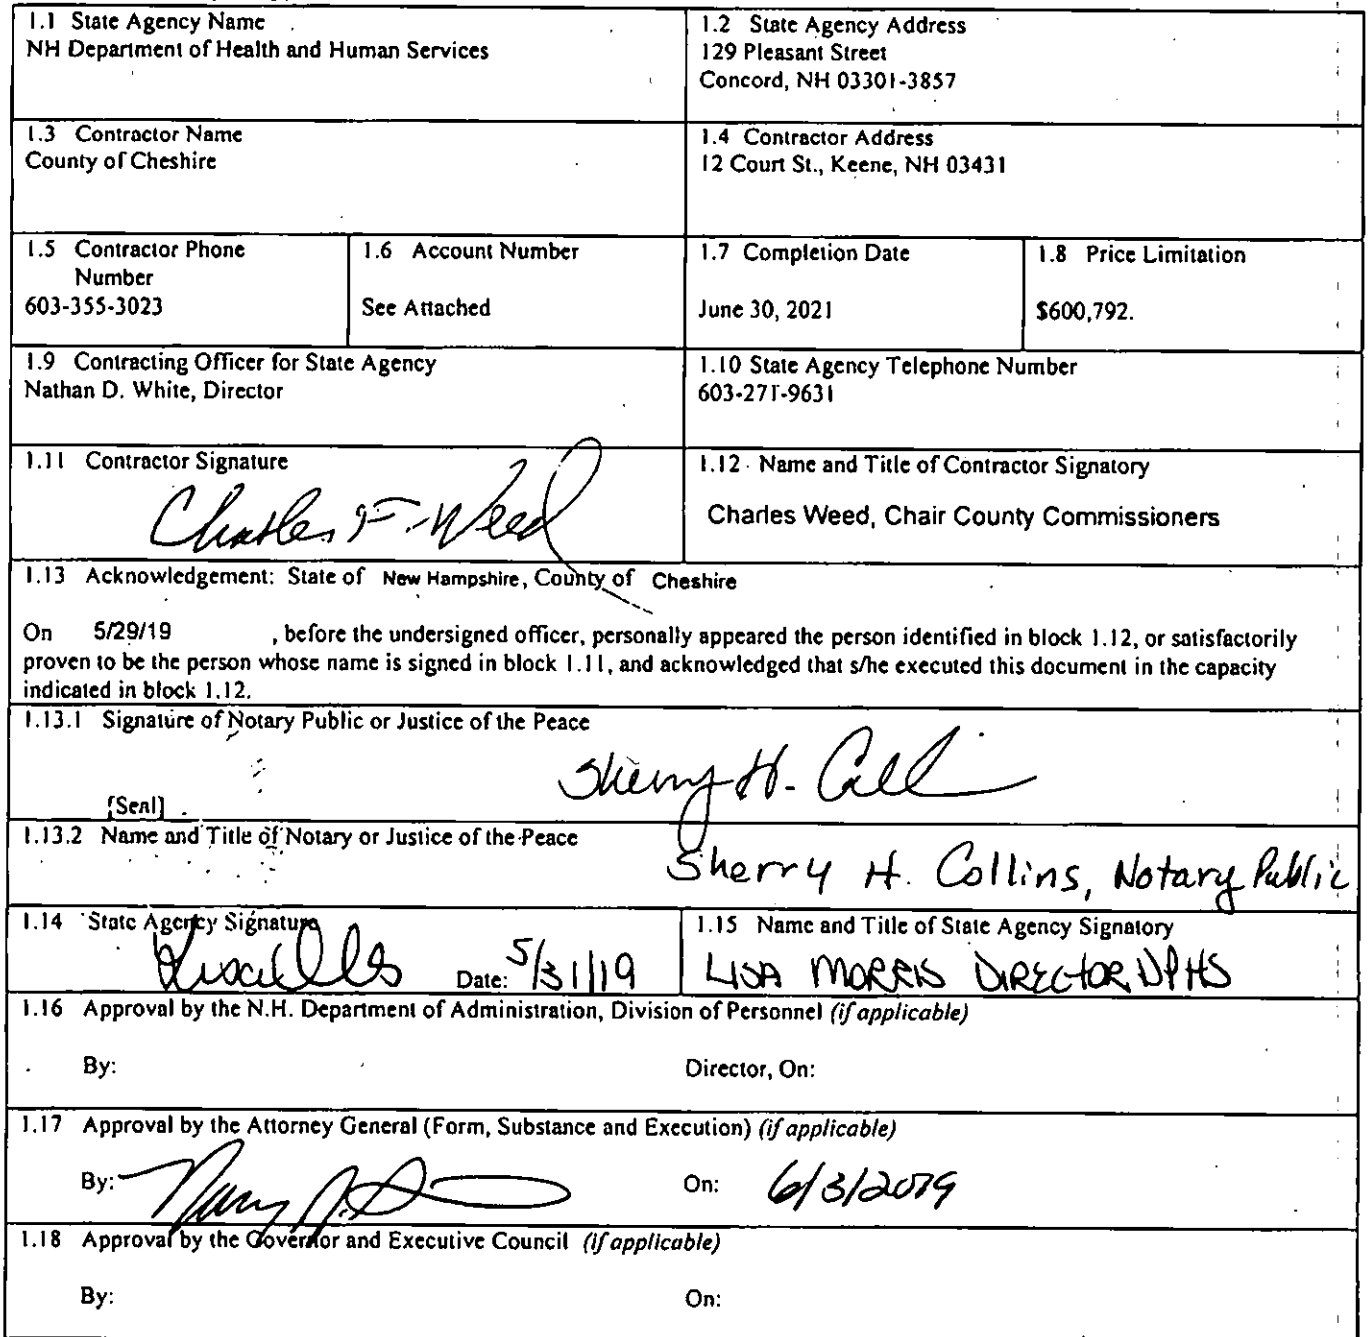 1.1 State Agency Name
NH Department of Health and Human Services
1.2 State Agency Address
129 Pleasant Street
Concord, NH 03301-3857
1.3 Contractor Name
County of Cheshire
1.4 Contractor Address
12 Court St., Keene, NH 03431
1.5 Contractor Phone
Number
603-355-3023
1.6 Account Number
See Attached
1.7 Completion Date
June 30, 2021
1.8 Price Limitation
$600,792.
1.9 Contracting Officer for State Agency
Nathan D. White, Director
1.10 State Agency Telephone Number
603-271-9631
1.11 Contractor Signature
Charles F. Weed
1.12 Name and Title of Contractor Signatory
Charles Weed, Chair County Commissioners
1.13 Acknowledgement: State of New Hampshire, County of Cheshire
On 5/29/19 , before the undersigned officer, personally appeared the person identified in block 1.12, or satisfactorily
proven to be the person whose name is signed in block 1.11, and acknowledged that s/he executed this document in the capacity
indicated in block 1.12.
1.13.1 Signature of Notary Public or Justice of the Peace
Sherry H.
[Seal]
1.13.2 Name and Title of Notary or Justice of the Peace
Sherry H. Collins, Notary Public
1.14 State Agency Signature
Date: 5/31/19
1.15 Name and Title of State Agency Signatory
LISA MORRIS DIRECTOR DPHS
1.16 Approval by the N.H. Department of Administration, Division of Personnel (if applicable)
By: Director, On:
1.17 Approval by the Attorney General (Form, Substance and Execution) (if applicable)
By: On: 6/3/2019
1.18 Approval by the Governor and Executive Council (if applicable)
By: On: